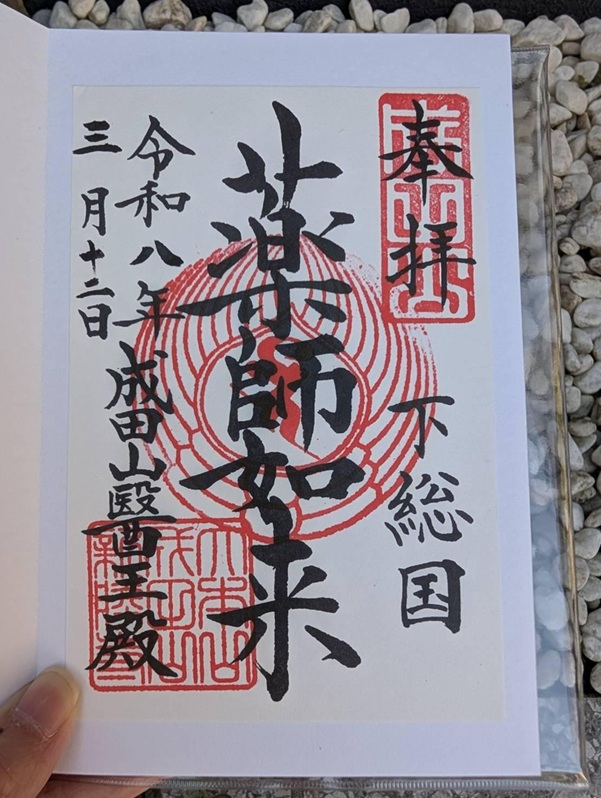 奉拝
下総国
薬師如来
令和八年
三月十二日
成田山醫王殿
成田山